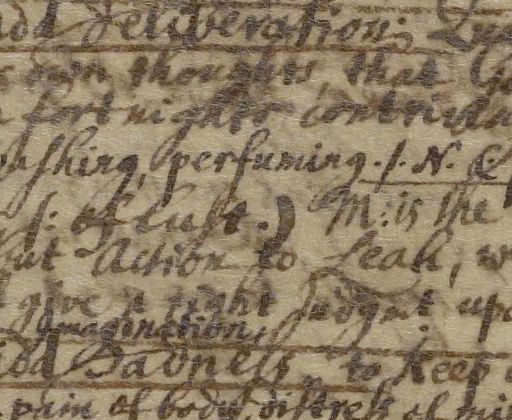 and Deliberation:
own thoughts, that
fortnights contriv
washing, perfuming. /. N.
/: of lust.) M: is the
that Action to Leah, w
give a right Judgmt upo
Imagination,
Sadness, to keep
pain of body, distress of